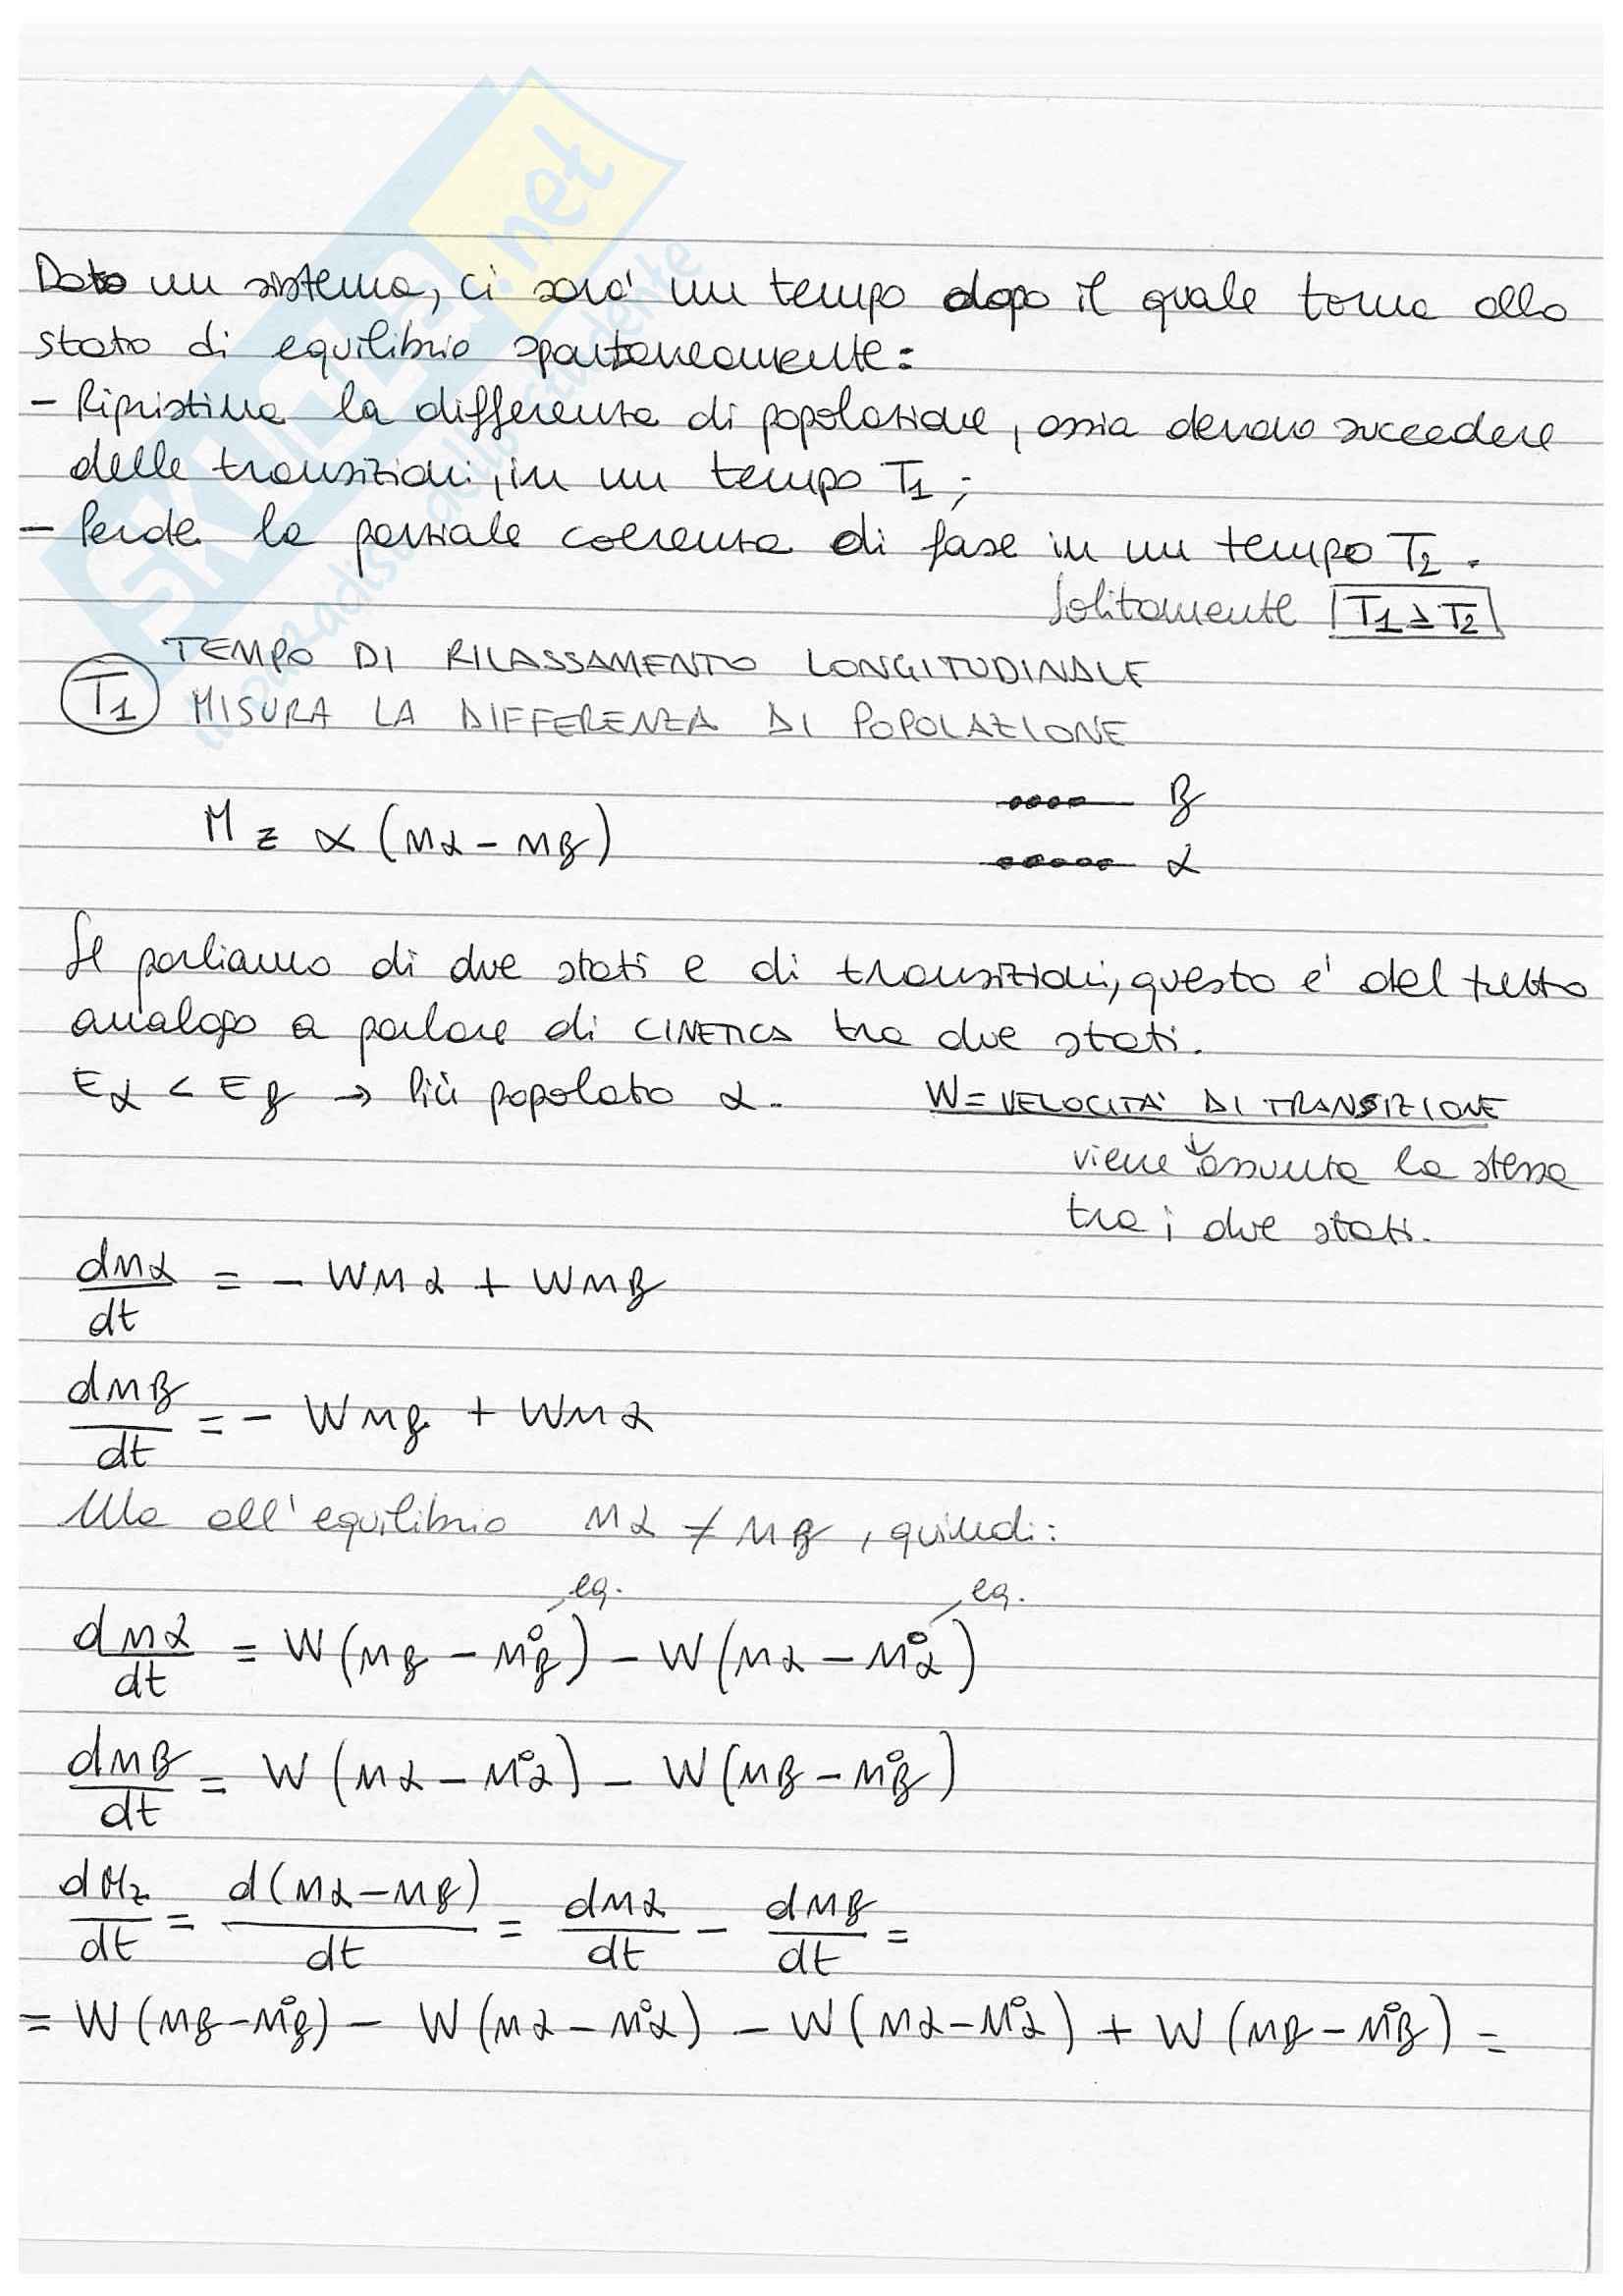 SKUOLA.net
il paradiso dello studente
Dato un sistema, ci sarà un tempo dopo il quale torna allo
stato di equilibrio spontaneamente:
- Ripristina la differenza di popolazione, ossia devono succedere
delle transizioni, in un tempo T1;
- Perde la parziale coerenza di fase in un tempo T2.
Solitamente T1 ≥ T2
T1 TEMPO DI RILASSAMENTO LONGITUDINALE
MISURA LA DIFFERENZA DI POPOLAZIONE
Mz ∝ (nα - nβ)
β
α
Se parliamo di due stati e di transizioni, questo è del tutto
analogo a parlare di CINETICA tra due stati.
Eα < Eβ → Più popolato α. W = VELOCITA' DI TRANSIZIONE
viene assunta la stessa
tra i due stati.
dnα/dt = - Wnα + Wnβ
dnβ/dt = - Wnβ + Wnα
Ma all'equilibrio nα ≠ nβ, quindi:
eq. eq.
dnα/dt = W(nβ - n°β) - W(nα - n°α)
dnβ/dt = W(nα - n°α) - W(nβ - n°β)
dMz/dt = d(nα - nβ)/dt = dnα/dt - dnβ/dt =
= W(nβ - n°β) - W(nα - n°α) - W(nα - n°α) + W(nβ - n°β) =